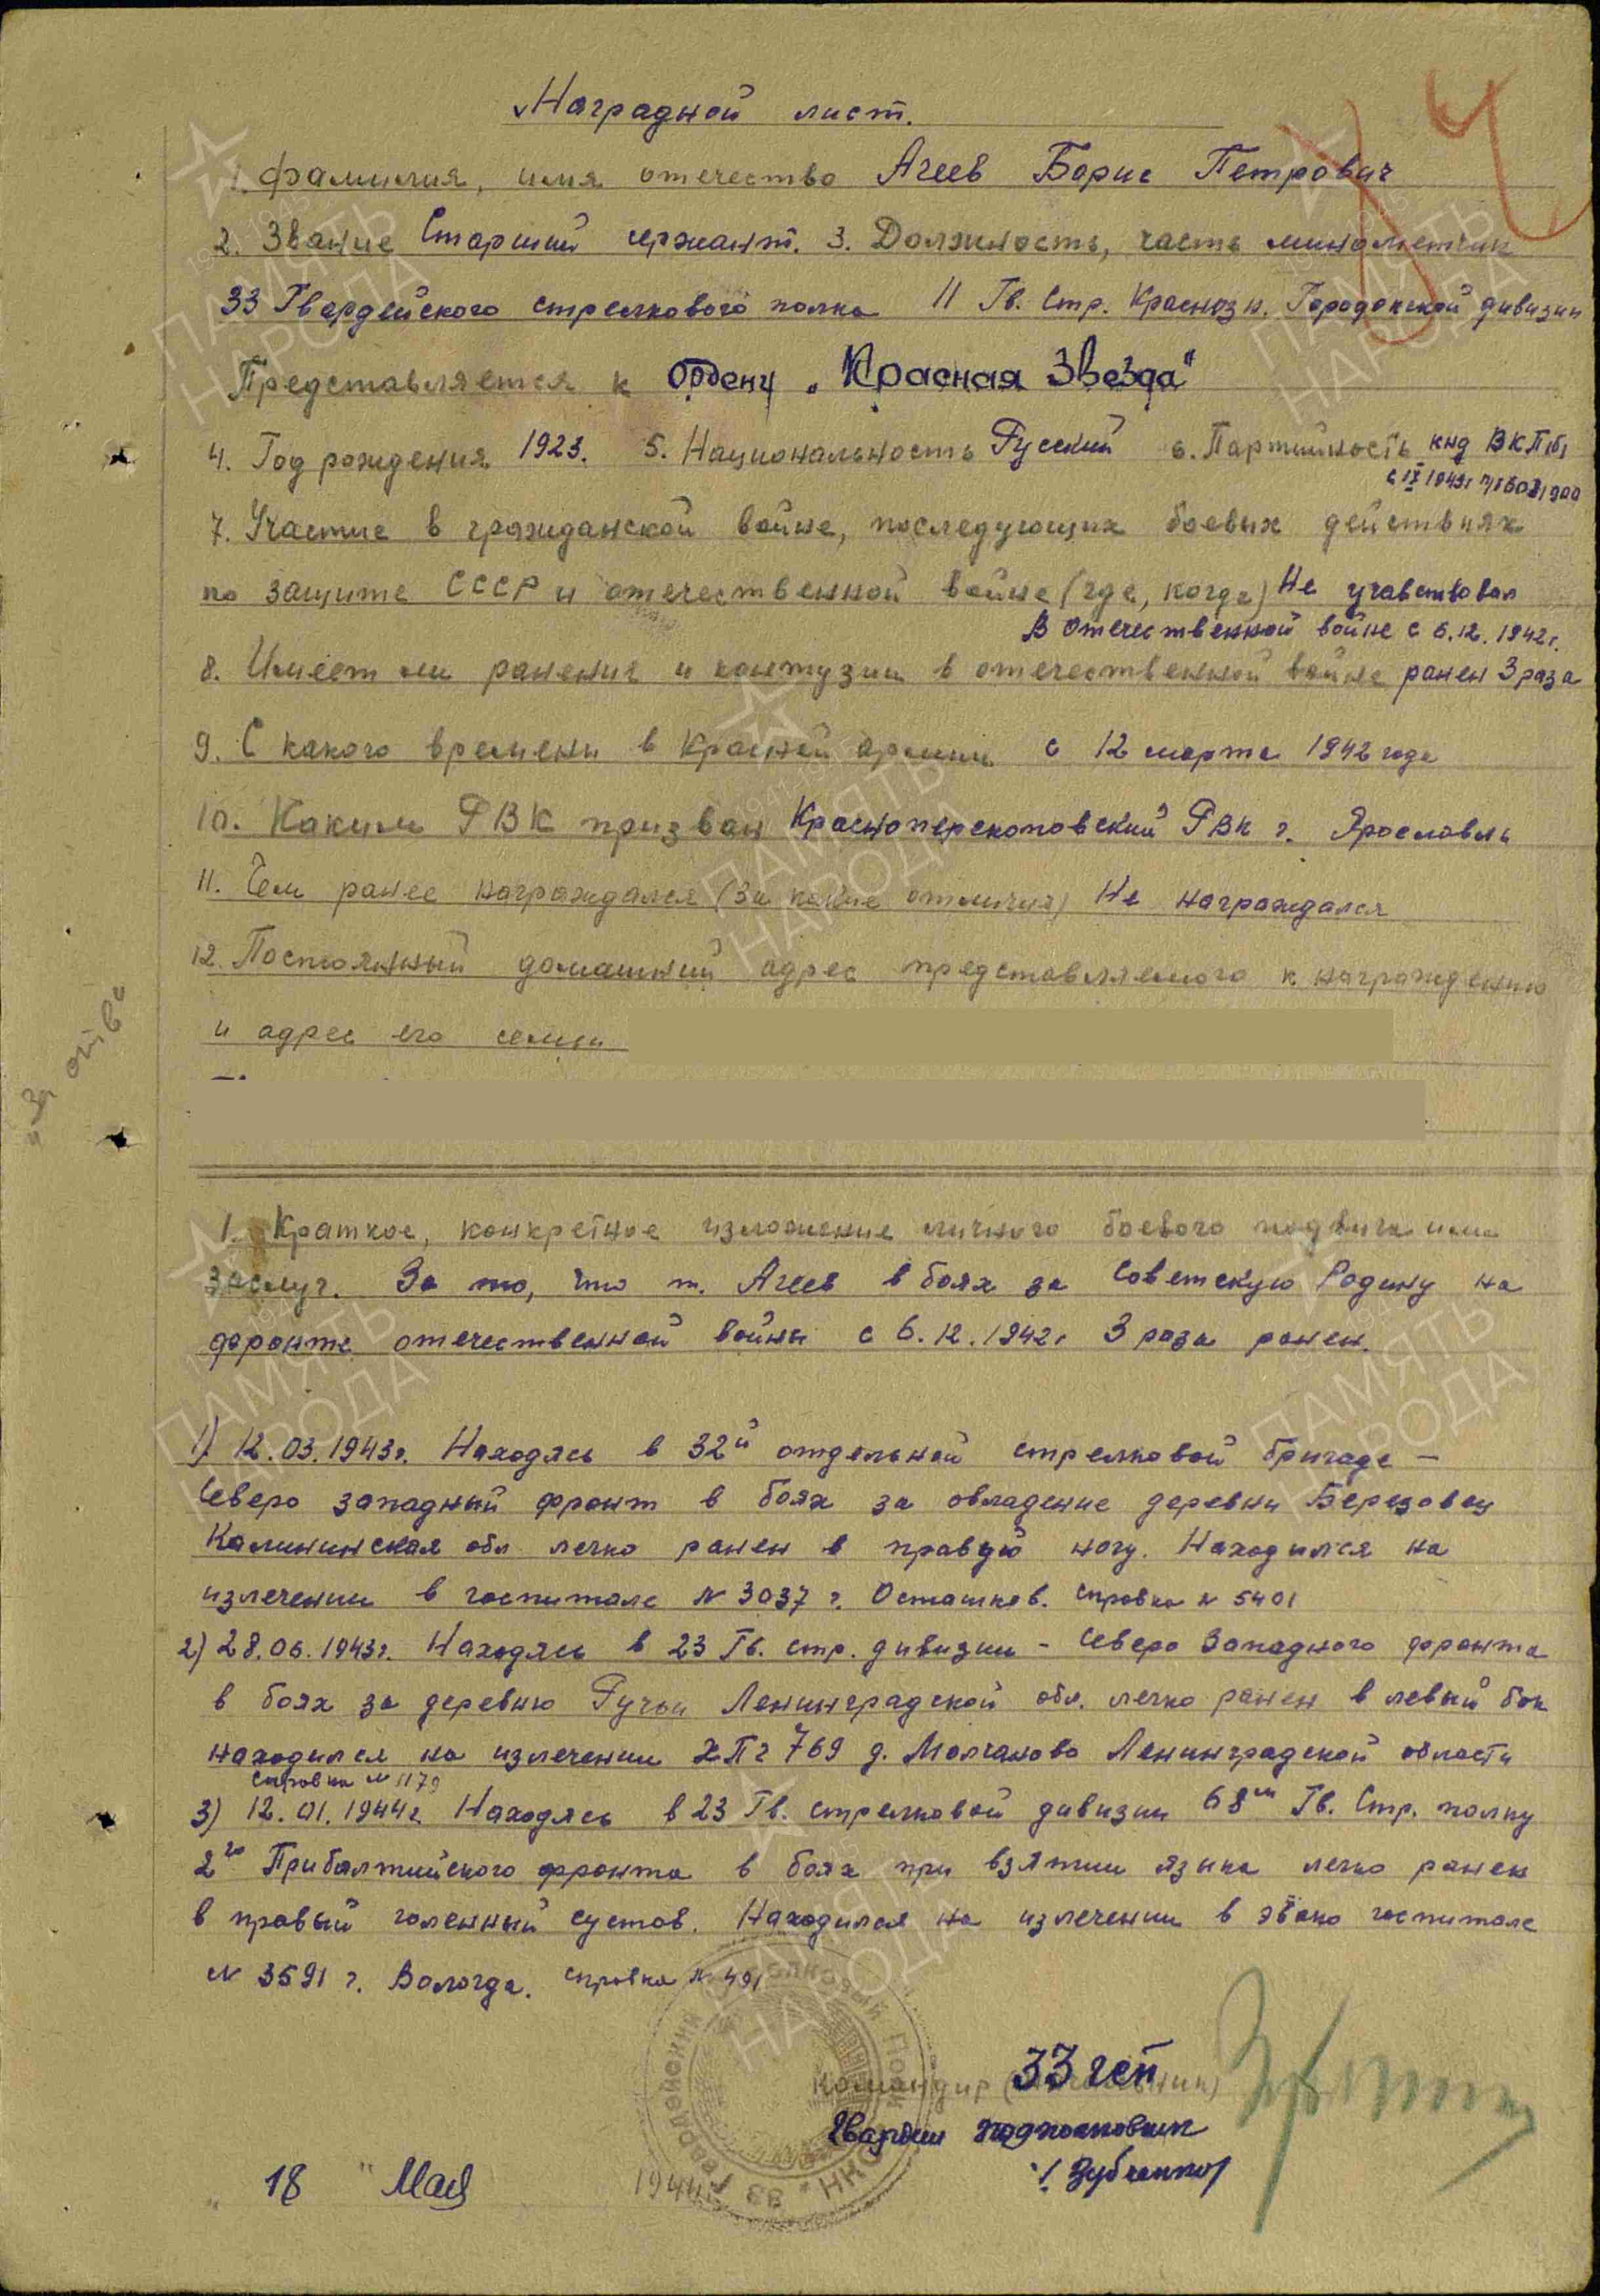 Наградной лист.
1. Фамилия, имя отчество Агеев Борис Петрович
2. Звание Старший сержант. 3. Должность, часть минометчик
33 Гвардейского стрелкового полка 11 Гв. Стр. Краснозн. Городокской дивизии
Представляется к ордену „Красная Звезда"
4. Год рождения 1923. 5. Национальность Русский 6. Партийность кнд ВКП(б)
с IX 1943г
7. Участие в гражданской войне, последующих боевых действиях
по защите СССР и отечественной войне (где, когда) Не учавствовал
В отечественной войне с 6.12.1942г.
8. Имеет ли ранения и контузии в отечественной войне ранен 3 раза
9. С какого времени в Красной армии с 12 марта 1942 года
10. Каким РВК призван Красноперекоповский РВК г. Ярославль
11. Чем ранее награждался (за какие отличия) Не награждался
12. Постоянный домашний адрес представляемого к награждению
и адрес его семьи
1. Краткое, конкретное изложение личного боевого подвига или
заслуг. За то, что т. Агеев в боях за Советскую Родину на
фронте отечественной войны с 6.12.1942г 3 раза ранен.
1) 12.03.1943г. Находясь в 32й отдельной стрелковой бригаде –
Северо западный фронт в боях за овладение деревни Березовец
Калининская обл легко ранен в правую ногу. Находился на
излечении в госпитале N 3037 г. Осташков. Справка N 5401
2) 28.06.1943г. Находясь в 23 Гв. стр. дивизии – Северо Западного фронта
в боях за деревню Ручьи Ленинградской обл. легко ранен в левый бок
находился на излечении ХППГ 769 д. Молчаново Ленинградской области
Справка N 1179
3) 12.01.1944г. Находясь в 23 Гв. стрелковой дивизии 68м Гв. Стр. полку
2го Прибалтийского фронта в боях при взятии языка легко ранен
в правый голенный сустав. Находился на излечении в эвако госпитале
N 3591 г. Вологда. Справка N 491
33 гсп
Командир (Начальник)
Гвардии подполковник
/Зубченко/
18 " Мая 1944г
"За отв"
ПАМЯТЬ НАРОДА